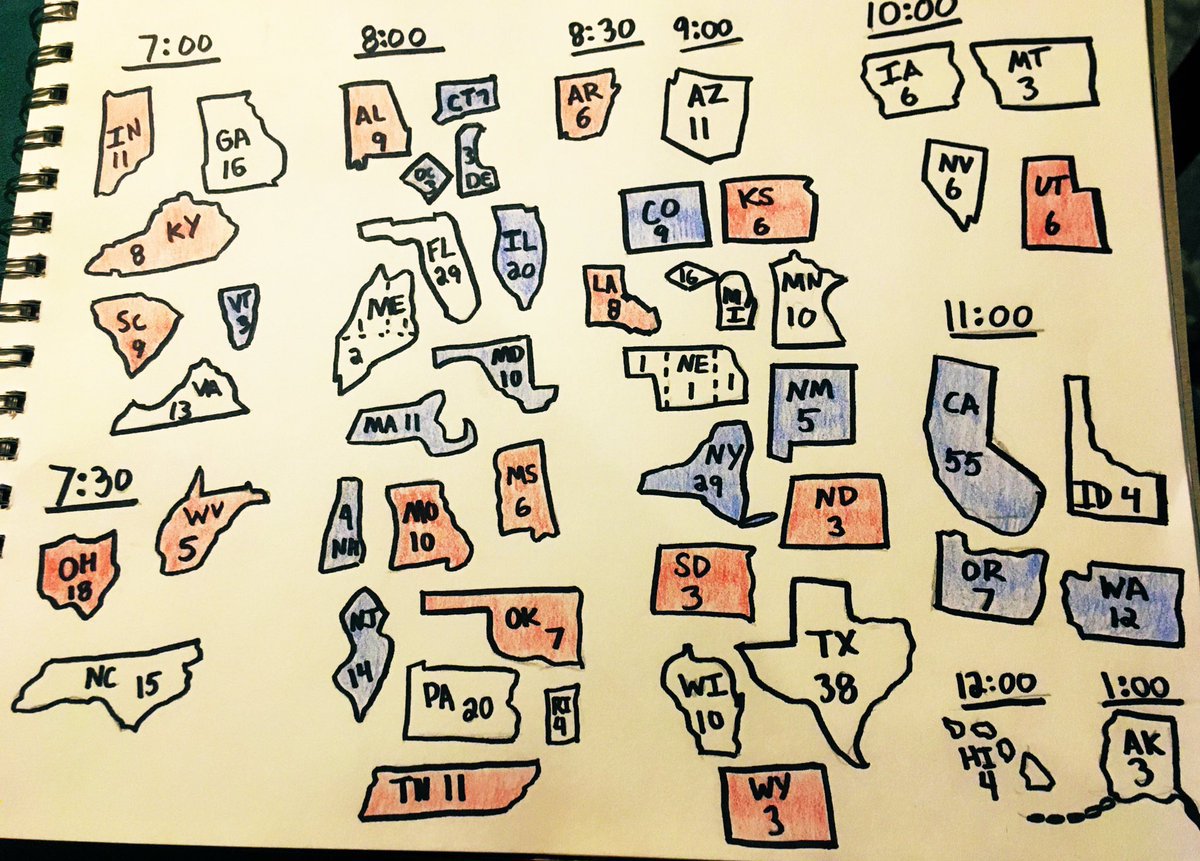 7:00
IN
11
GA
16
KY
8
SC
9
VT
3
VA
13
7:30
WV
5
OH
18
NC 15
8:00
AL
9
CT 7
DC
3
3
DE
FL
29
IL
20
ME
2
MD
10
MA 11
MS
6
4
NH
MO
10
NJ
14
OK
7
PA 20
RI
4
TN 11
8:30
AR
6
9:00
AZ
11
CO
9
KS
6
LA
8
16
MI
MN
10
1 NE 1
1
NM
5
NY
29
ND
3
SD
3
TX
38
WI
10
WY
3
10:00
IA
6
MT
3
NV
6
UT
6
11:00
CA
55
ID 4
OR
7
WA
12
12:00
HI
4
1:00
AK
3